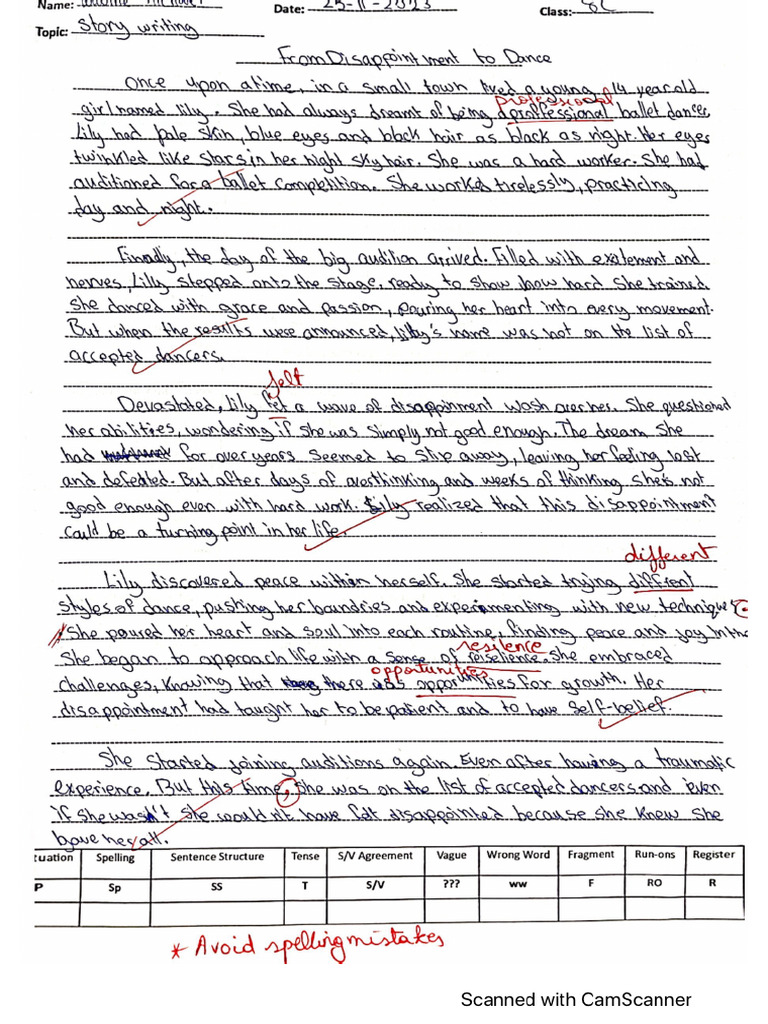 Name:
Date: 23-11-2023
Class: 8C
Topic: Story writing
From Disappointment to Dance
Once upon a time, in a small town lived a young, 14 year old
professional
girl named lily. She had always dreamt of being a proffessional ballet dancer
Lily had pale skin, blue eyes and black hair as black as night. Her eyes
twinkled like stars in her night sky hair. She was a hard worker. She had
auditioned for a ballet competition. She worked tirelessly, practicing
day and night.
Finally, the day of the big audition arrived. Filled with excitement and
nerves, Lilly stepped onto the stage. ready to show how hard She trained
She danced with grace and passion, pouring her heart into every movement.
But when the results were announced, lilly's name was not on the list of
accepted dancers.
felt
Devastated, Lily felt a wave of disappoinment wash over her. She questioned
her abilities, wondering if She was Simply not good enough. The dream She
had for over years Seemed to Slip away, leaving her feeling lost
and defeated. But after days of overthinking and weeks of thinking she's not
good enough even with hard work. Lily realized that this disappointment
could be a turning point in her life.
different
Lily discovered peace within herself. She started trying diffrent
styles of dance, pushing her boundries and experimenting with new technique
She poured her heart and soul into each routine, finding peace and joy in the
resilence
She began to approach life with a sense of reisellince. She embraced
opportunities
challenges, knowing that there is opportunities for growth. Her
disappointment had taught her to be patient and to have Self-belief.
She Started joining auditions again. Even after having a traumatic
experience. But this time, She was on the list of accepted dancers and even
if She wasn't She wouldn't have felt disappointed because she knew She
gave her all.
tuation Spelling Sentence Structure Tense S/V Agreement Vague Wrong Word Fragment Run-ons Register
P Sp SS T S/V ??? ww F RO R
* Avoid spelling mistakes
Scanned with CamScanner